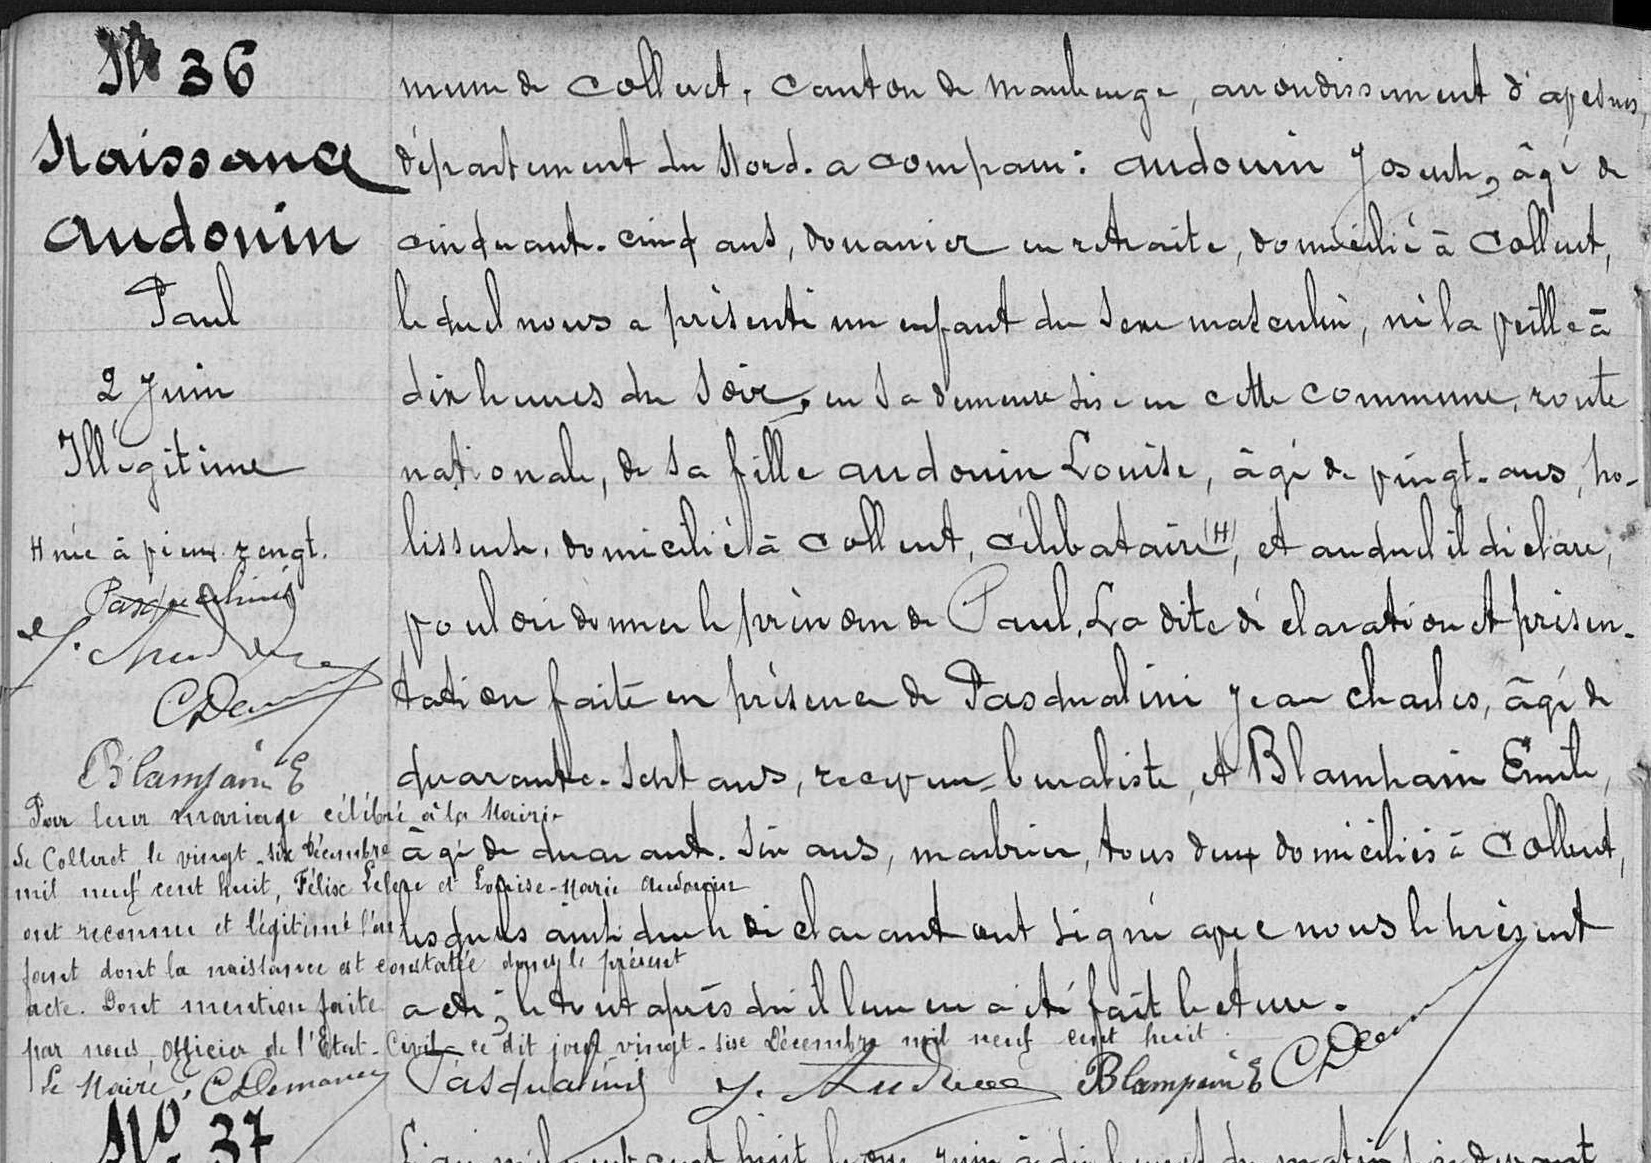 No 36
Naissance
Audouin
Paul
2 Juin
Illégitime
H née à vieux-rengt.
Pasqualini
J. Audouin
CDemanez
Blampain E
Par leur mariage célébré à la Mairie
de Colleret le vingt-six Décembre
mil neuf cent huit, Félix et Louise-Marie Audouin
ont reconnu et légitimé l'en
fant dont la naissance est constatée dans le présent
acte. Dont mention faite
par nous, Officier de l'Etat-Civil ce dit jour vingt-six Décembre mil neuf cent huit.
Le Maire, CDemanez
mune de Colleret, Canton de Maubeuge, arrondissement d'avesnes,
département du Nord. a comparu: audouin Joseph, âgé de
cinquante-cinq ans, douanier en retraite, domicilié à Colleret,
lequel nous a présenté un enfant du sexe masculin, né la veille à
dix heures du soir, en sa demeure sise en cette commune, route
nationale, de sa fille audouin Louise, âgé de vingt-ans, po-
lisseuse, domiciliée à Colleret, célibataire (H), et auquel il déclare,
vouloir donner le prénom de Paul. La dite déclaration et présen-
tation faite en présence de Pasqualini Jean Charles, âgé de
quarante-sept ans, receveur-buraliste, et Blampain Emile,
âgé de quarante-six ans, marbrier, tous deux domiciliés à Colleret,
lesquels ainsi que le déclarant ont signé avec nous le présent
acte, le tout après qu'il leur en a été fait lecture.
Pasqualini J. Audouin Blampain E CDemanez
No 37